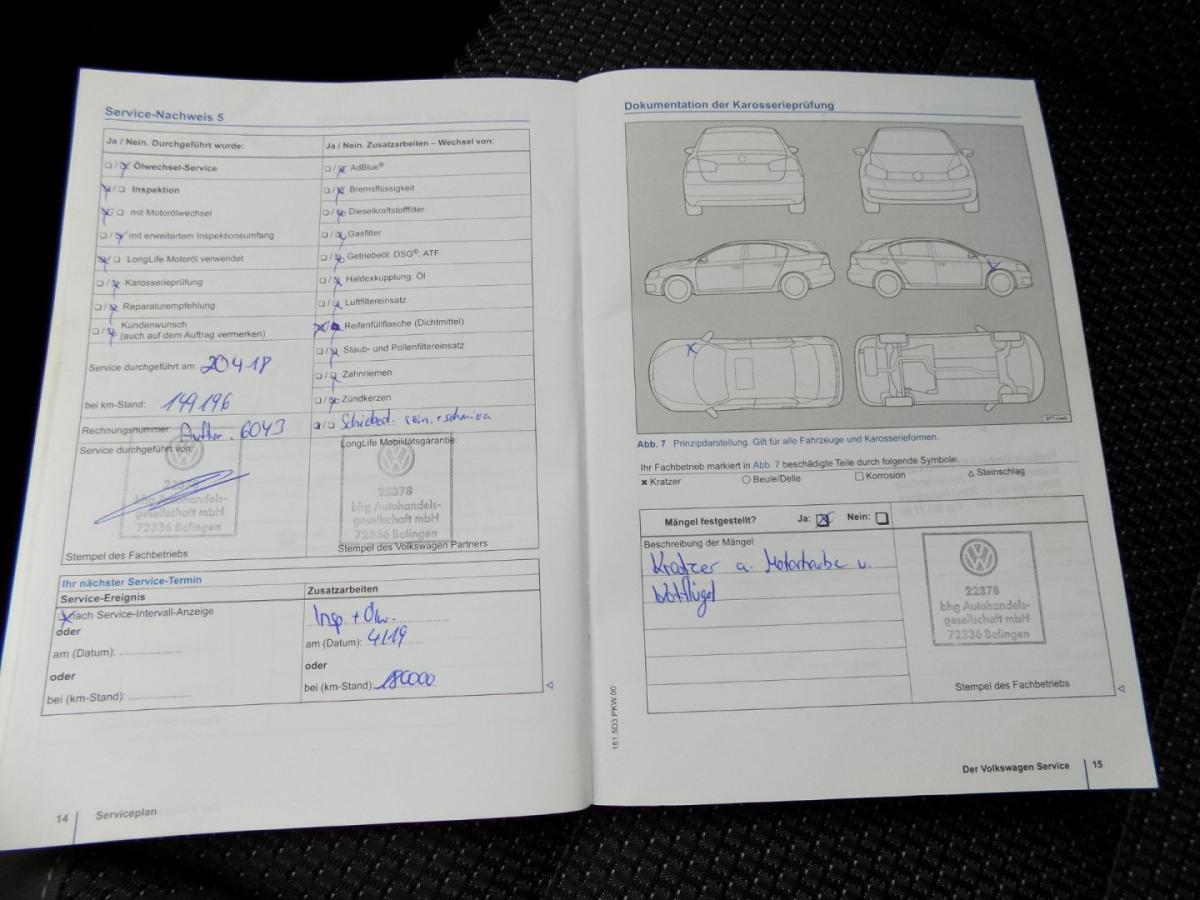 Service-Nachweis 5
Ja / Nein. Durchgeführt wurde:
❑ / ❑ Ölwechsel-Service
❑ / ❑ Inspektion
❑ / ❑ mit Motorölwechsel
❑ / ❑ mit erweitertem Inspektionsumfang
❑ / ❑ LongLife Motoröl verwendet
❑ / ❑ Karosserieprüfung
❑ / ❑ Reparaturempfehlung
❑ / ❑ Kundenwunsch
(auch auf dem Auftrag vermerken)
Service durchgeführt am: 20418
bei km-Stand: 149196
Rechnungsnummer: 6043
Service durchgeführt von:
22378
bhg Autohandels-
gesellschaft mbH
72336 Balingen
Stempel des Fachbetriebs
Ja / Nein. Zusatzarbeiten – Wechsel von:
❑ / ❑ AdBlue®
❑ / ❑ Bremsflüssigkeit
❑ / ❑ Dieselkraftstofffilter
❑ / ❑ Gasfilter
❑ / ❑ Getriebeöl: DSG®, ATF
❑ / ❑ Haldexkupplung: Öl
❑ / ❑ Luftfiltereinsatz
❑ / ❑ Reifenfüllflasche (Dichtmittel)
❑ / ❑ Staub- und Pollenfiltereinsatz
❑ / ❑ Zahnriemen
❑ / ❑ Zündkerzen
❑ / ❑ Schiebed. rein. +
LongLife Mobilitätsgarantie:
22378
bhg Autohandels-
gesellschaft mbH
72336 Balingen
Stempel des Volkswagen Partners
Ihr nächster Service-Termin
Service-Ereignis
nach Service-Intervall-Anzeige
oder
am (Datum):
oder
bei (km-Stand):
Zusatzarbeiten
Insp + Ölw.
am (Datum): 4.19
oder
bei (km-Stand): 180000
14 Serviceplan
Dokumentation der Karosserieprüfung
Abb. 7 Prinzipdarstellung. Gilt für alle Fahrzeuge und Karosserieformen.
Ihr Fachbetrieb markiert in Abb. 7 beschädigte Teile durch folgende Symbole:
✖ Kratzer ○ Beule/Delle □ Korrosion △ Steinschlag
Mängel festgestellt? Ja: Nein:
Beschreibung der Mängel:
Kratzer a. Motorhaube u.
Kotflügel
22378
bhg Autohandels-
gesellschaft mbH
72336 Balingen
Stempel des Fachbetriebs
151.5D3.PKW.00
Der Volkswagen Service 15